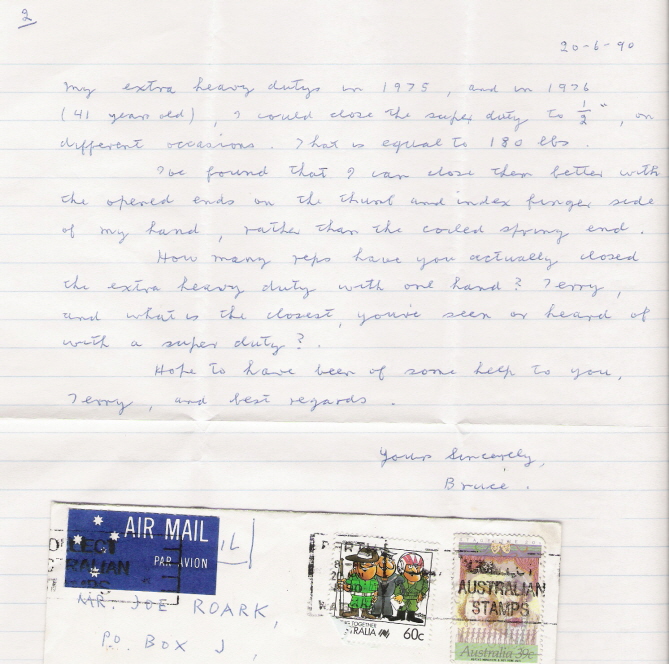 2
20-6-90
my extra heavy dutys in 1975, and in 1976
(41 years old), I could close the super duty to 1/2", on
different occasions. That is equal to 180 lbs.
I've found that I can close them better with
the opened ends on the thumb and index finger side
of my hand, rather than the coiled spring end.
How many reps have you actually closed
the extra heavy duty with one hand? Terry,
and what is the closest, you've seen or heard of
with a super duty?.
Hope to have been of some help to you,
Terry, and best regards.
Yours Sincerely,
Bruce.
AIR MAIL
PAR AVION
MR. JOE ROARK,
P.O. BOX J,
TOGETHER
RALIA 60c
AUSTRALIAN
STAMPS
Australia 39c